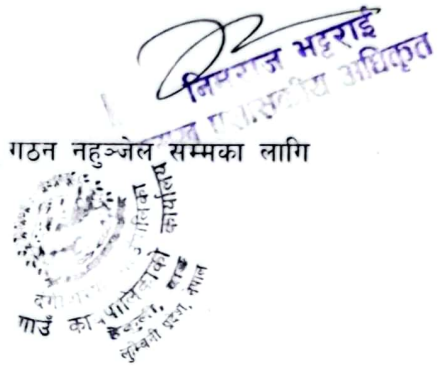 निमराज भट्टराई
प्रशासकीय अधिकृत
गठन नहुञ्जेल सम्मका लागि
गाउँ कार्यपालिकाको कार्यालय
हेकुली, दाङ
लुम्बिनी प्रदेश, नेपाल